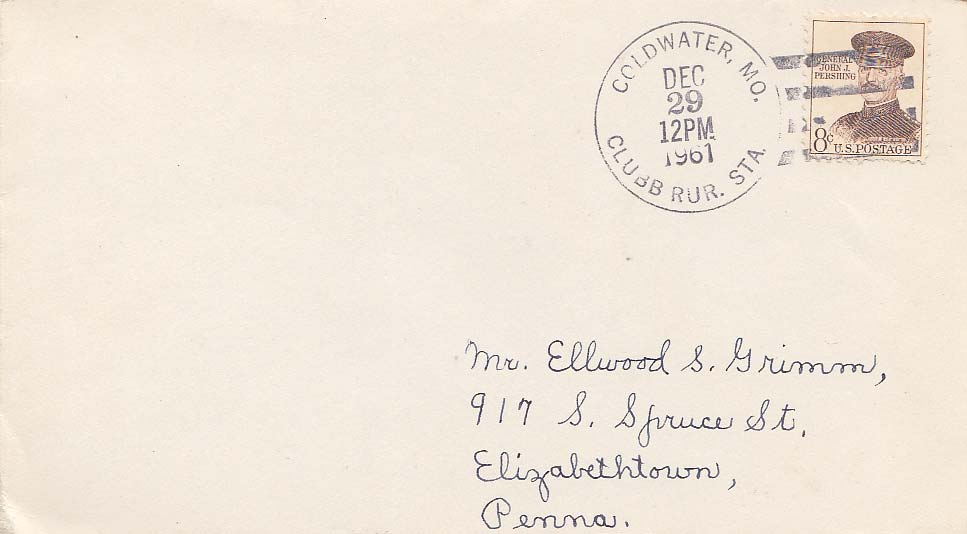 COLDWATER, MO.
DEC
29
12PM
1961
CLUBB RUR. STA.
GENERAL
JOHN J.
PERSHING
8c
U.S. POSTAGE
Mr. Ellwood S. Grimm,
917 S. Spruce St.
Elizabethtown,
Penna.